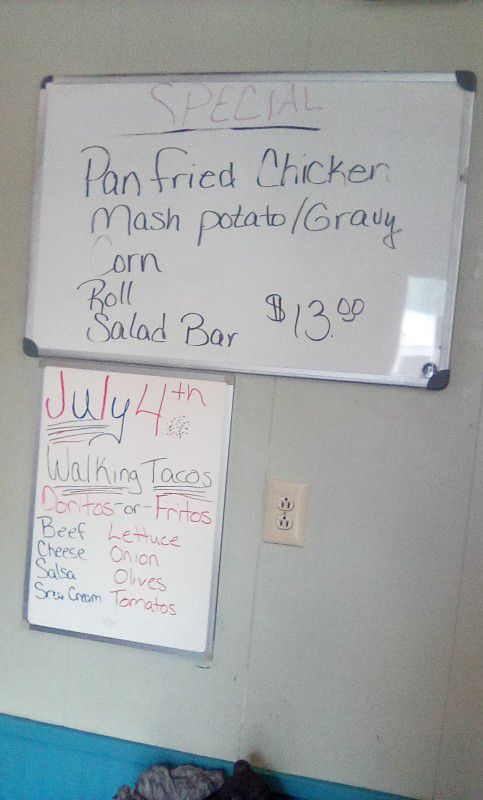 SPECIAL
Pan fried Chicken
Mash potato/Gravy
Corn
Roll
Salad Bar $13.00
July 4th
Walking Tacos
Doritos-or-Fritos
Beef Lettuce
Cheese Onion
Salsa Olives
Sour Cream Tomatos